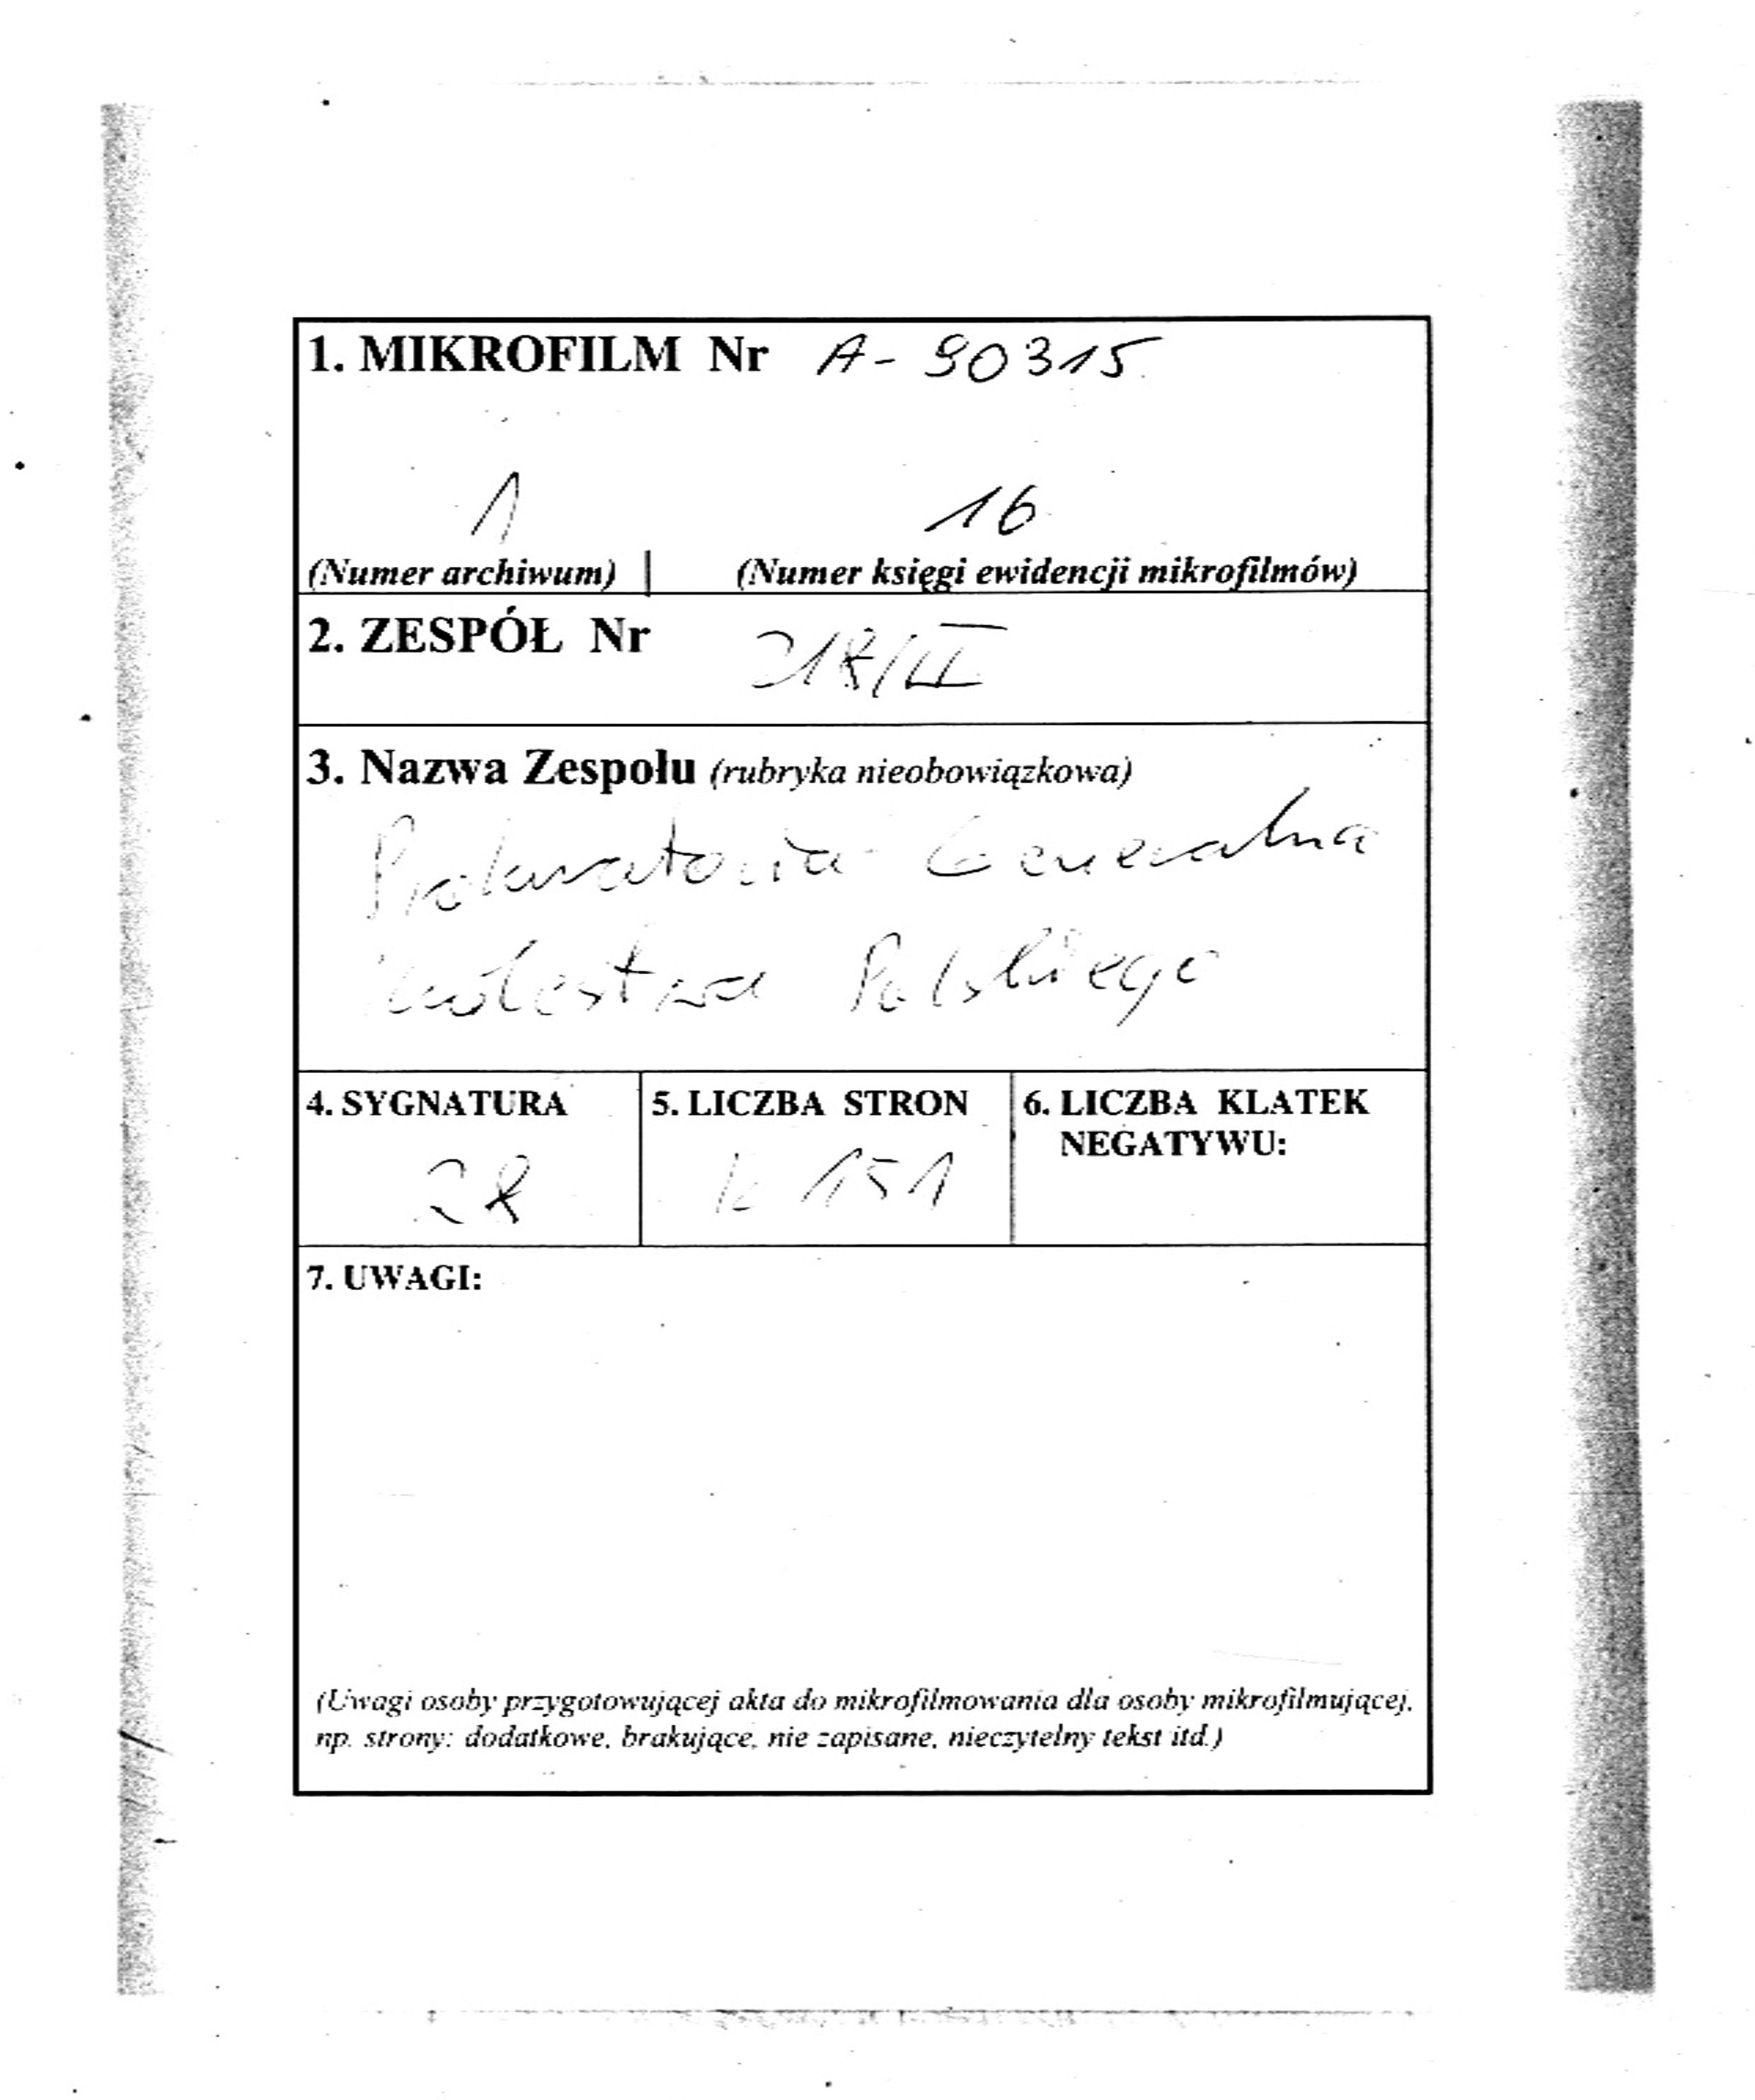 1. MIKROFILM Nr A-90315
1 16
(Numer archiwum) | (Numer księgi ewidencji mikrofilmów)
2. ZESPÓŁ Nr 218/II
3. Nazwa Zespołu (rubryka nieobowiązkowa)
Prokuratoria Generalna
Królestwa Polskiego
4. SYGNATURA 5. LICZBA STRON 6. LICZBA KLATEK
NEGATYWU:
28 k 151
7. UWAGI:
(Uwagi osoby przygotowującej akta do mikrofilmowania dla osoby mikrofilmującej,
np. strony: dodatkowe, brakujące, nie zapisane, nieczytelny tekst itd.)